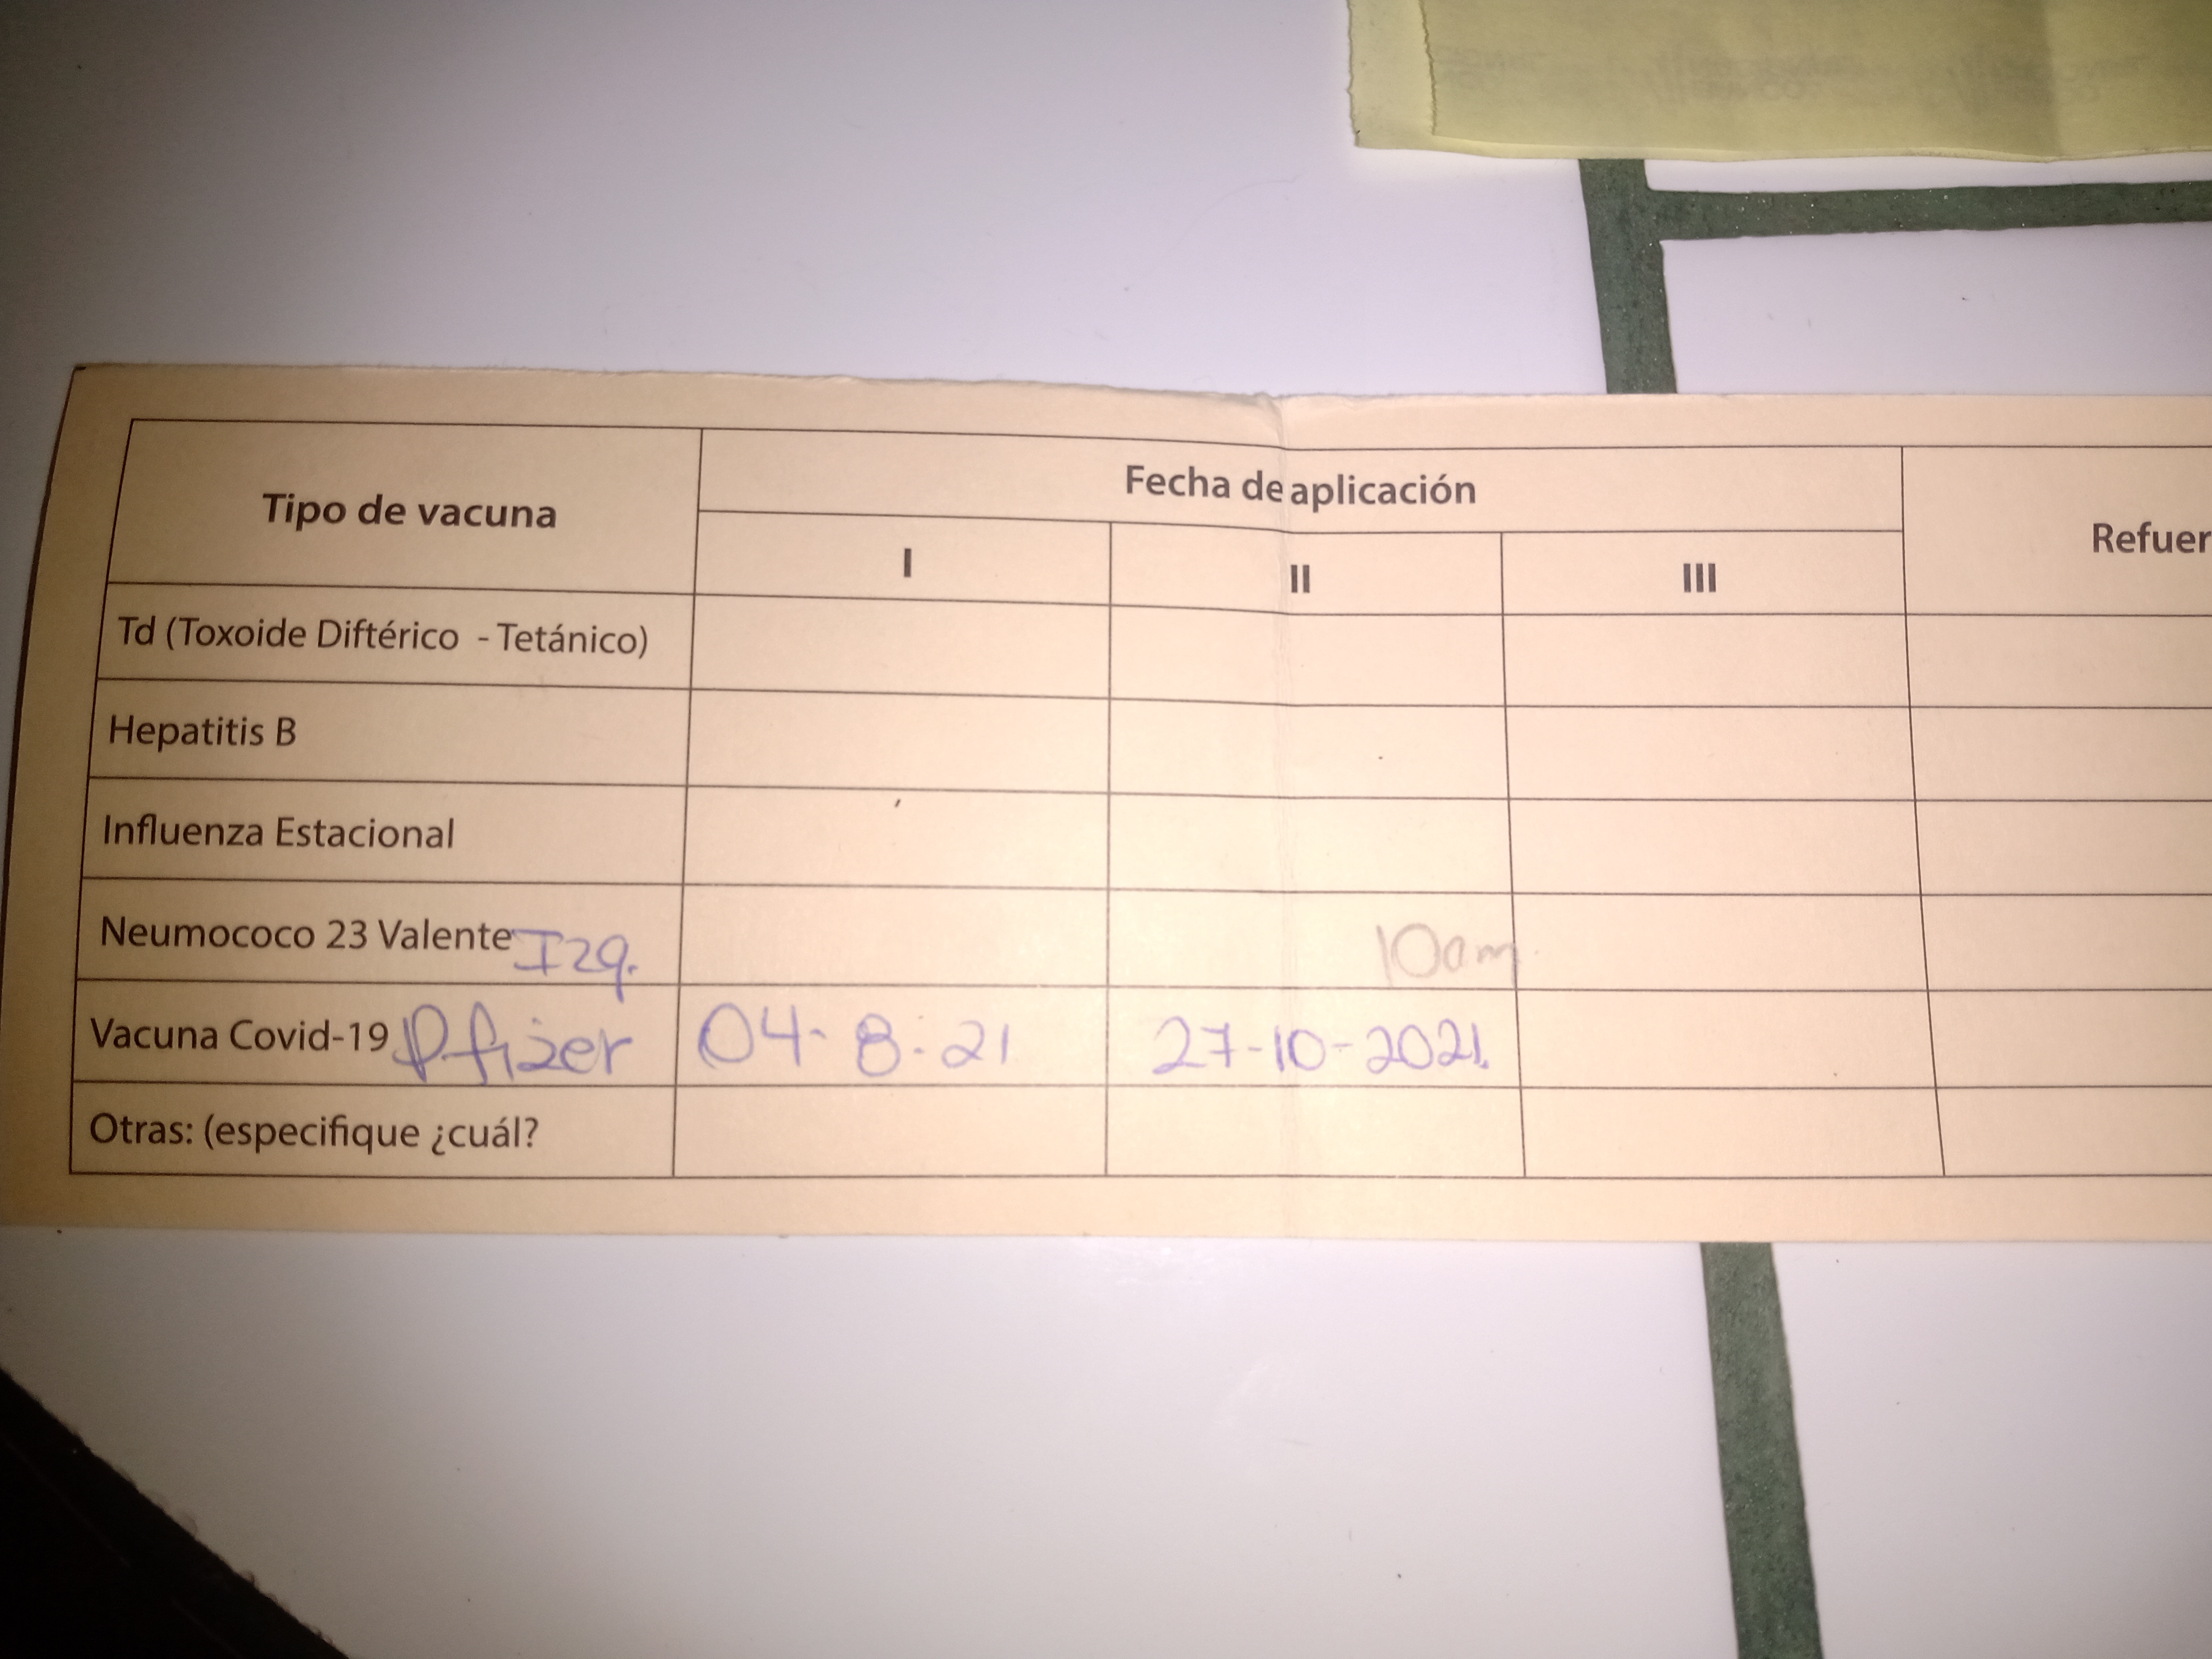 Tipo de vacuna
Fecha de aplicación
I II III
Refuer
Td (Toxoide Diftérico - Tetánico)
Hepatitis B
Influenza Estacional
Neumococo 23 Valente Izq.
10am
Vacuna Covid-19 Pfizer 04-8-21 27-10-2021.
Otras: (especifique ¿cuál?